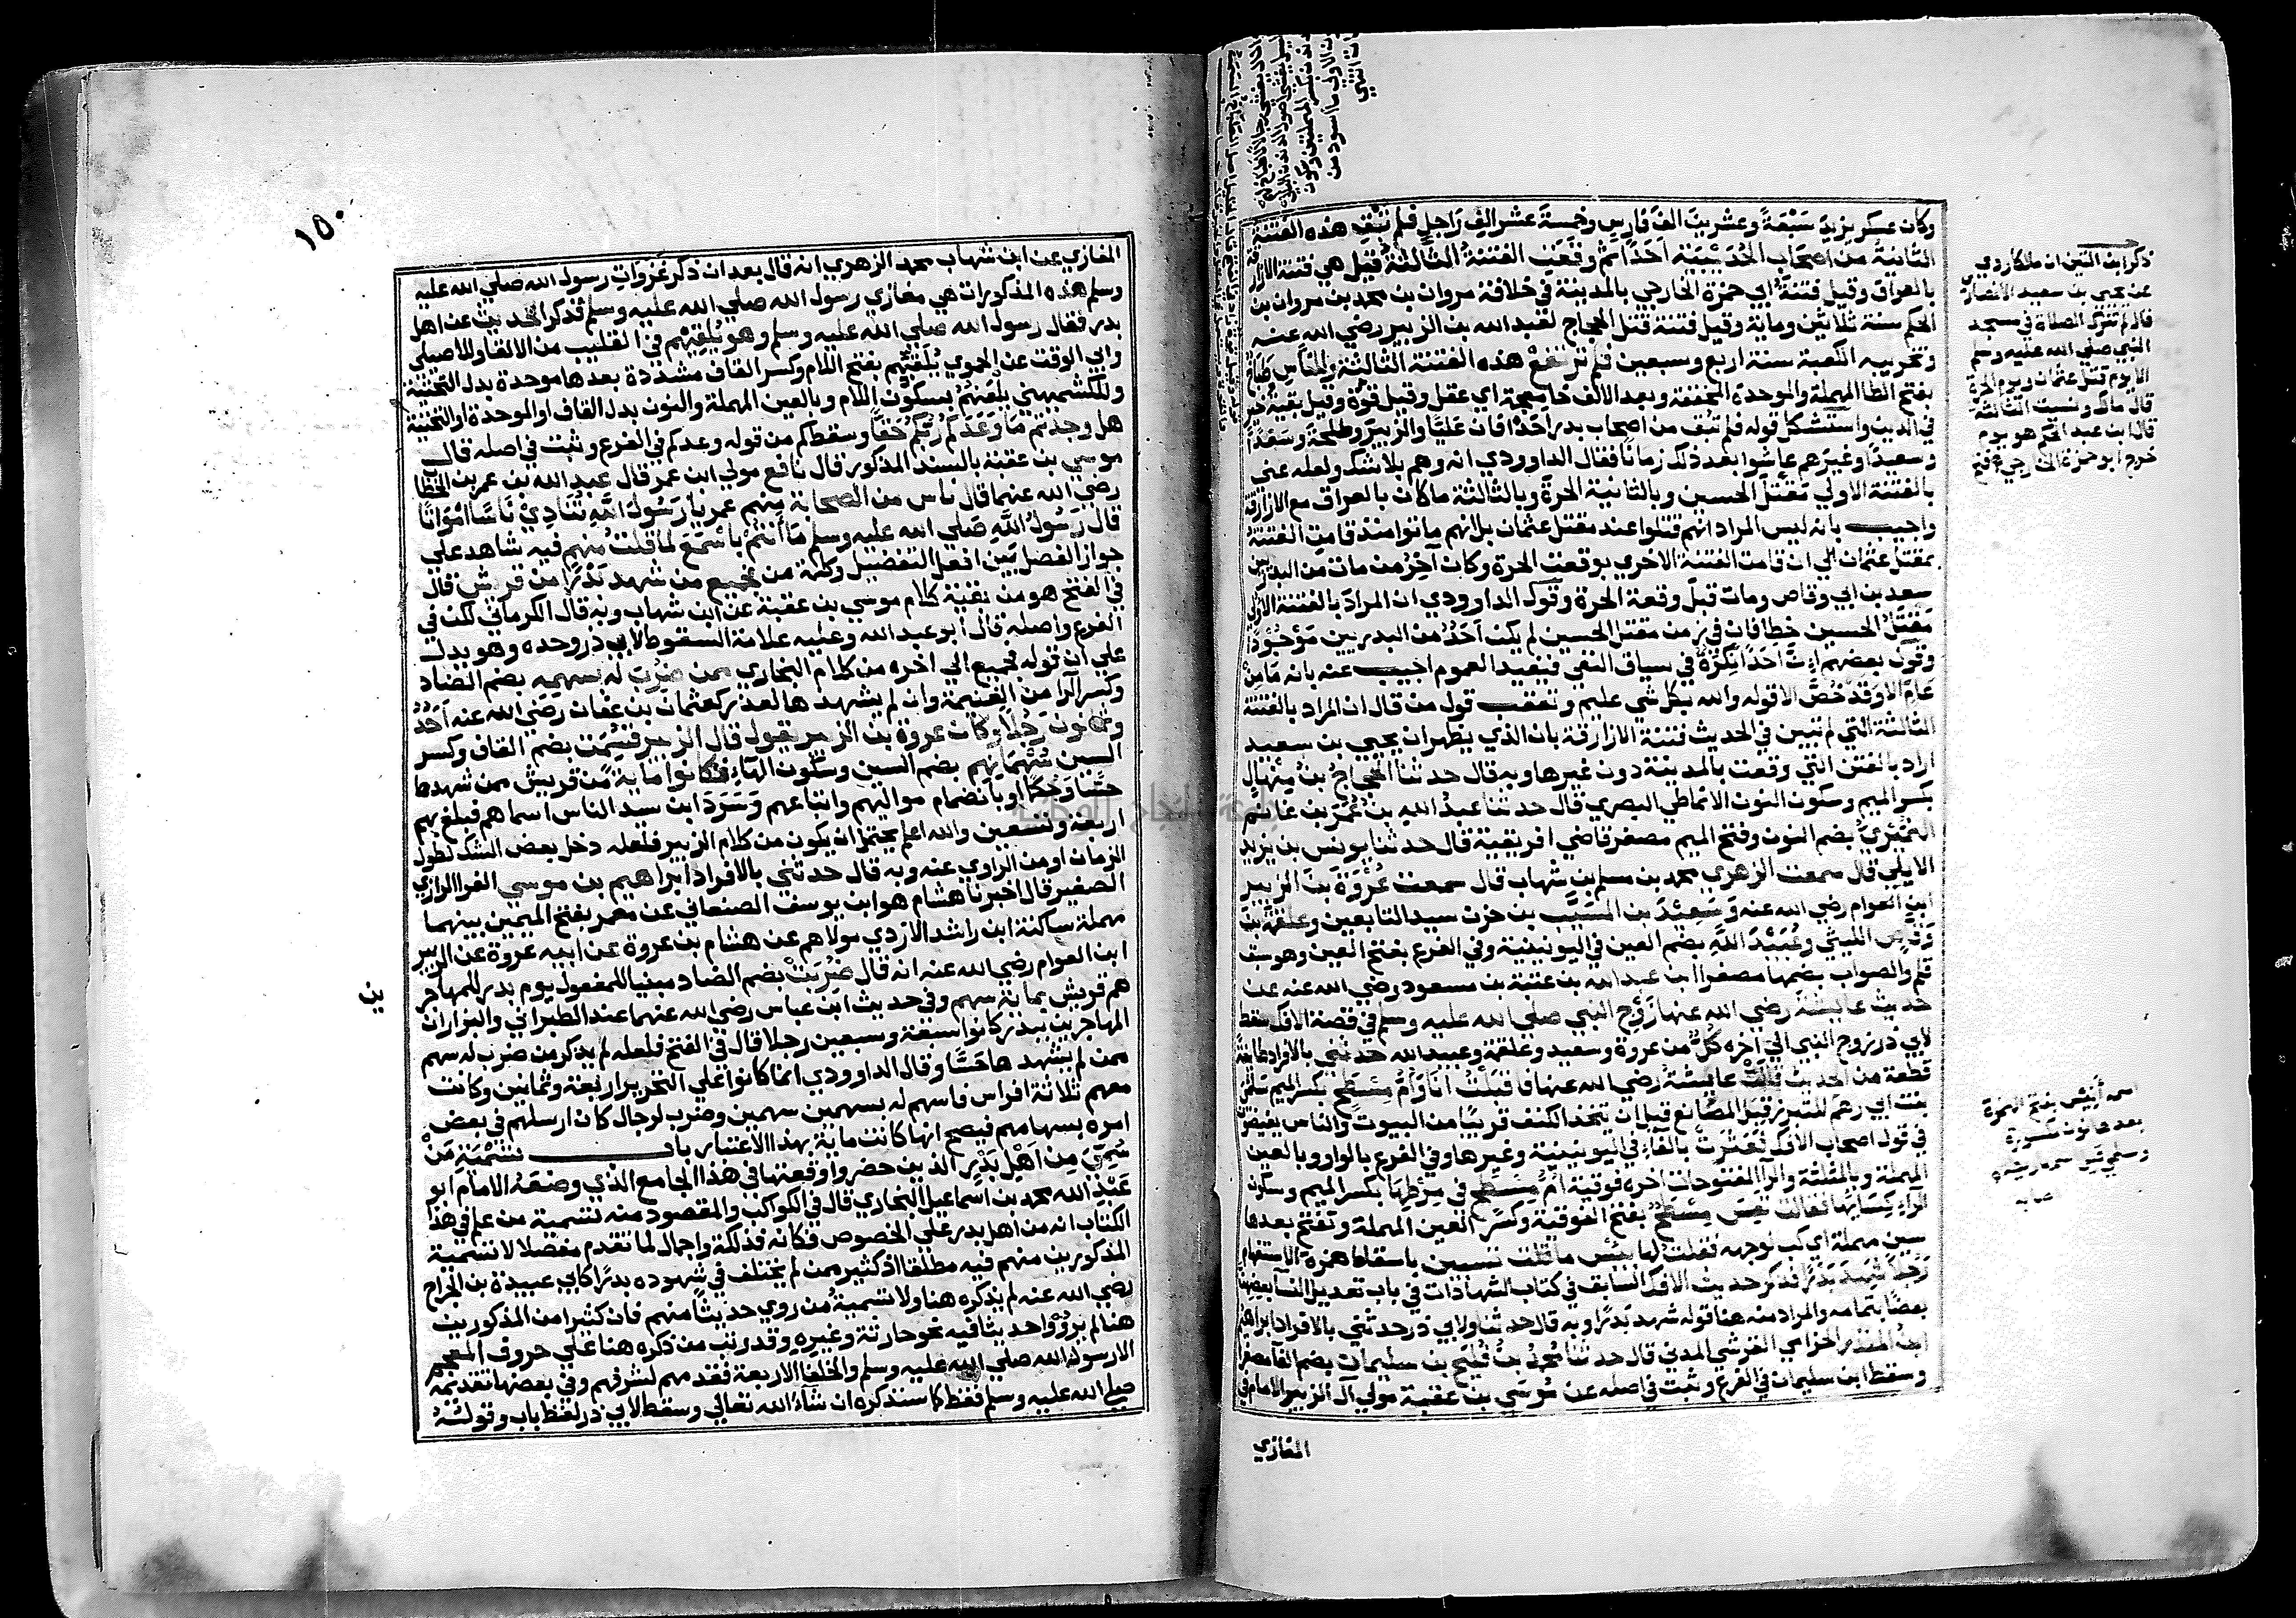 وكان عسكر يزيد سَبْعَةً وعشرين الف فارس وخمسةَ عشر الفَ رَاجلٍ فلم تُبْقِ هذه الفتنة
الثانيةُ من اصحاب الحُدَيْبِيَة اَحَدًا ثم وقعَتِ الفتنةُ الثالثةُ قيل هي فتنة الازارقة
بالعراق وقيل فتنة ابي حمزة الخارجي بالمدينة في خلافة مروان بن محمد بن مروان بن
الحكم سنة ثلاثين وماية وقيل فتنة قتل الحجاج لعبد الله بن الزبير رضي الله عنه
وتخريبه الكعبة سنة اربع وسبعين فلم ترتفعْ هذه الفتنة الثالثة وللناسِ طَبَاخ
بفتح الطا المهملة والموحدة المخففة وبعد الالف خا معجمة اي عقل وقيل قوّة وقيل بقية خير
في الدين واستشكل قوله فلم تُبْق من اصحاب بدر احدًا فان عَليًّا والزبيرَ وطلحةَ وسَعْدًا
وسعيدًا وغيرَهم عاشوا بعد ذلك زمانًا فقال الداوودي انه وهم بلا شك ولعله عنى
بالفتنة الاولي مَقْتَلَ الحسين وبالثانية الحرةَ وبالثالثة ما كان بالعراق مع الازارقة
واجيب بانه ليس المراد انهم قتلوا عند مقتل عثمان بل انهم ماتوا منذ قامت الفتنة
بمقتل عثمان الي ان قامت الفتنة الاخري بوقعة الحرة وكان آخِرُ من مات من البدريين
سعد بن ابي وقاص ومات قبلَ وقعة الحرة وقول الداوودي ان المراد بالفتنة الاولي
مَقْتَلُ الحسين خطا فان في زمن مقتل الحسين لم يكن اَحَدٌ من البدريين مَوْجُودًا
وقول بعضهم انّ اَحَدًا نَكِرَةٌ في سياق النفي فيفيد العموم اجيب عنه بانه مَا مِنْ
عَامٍّ الا وقَدْ خُصَّ الا قوله والله بكل شي عليم وتعقب قول من قال ان المراد بالفتنة
الثالثة التي لم تبين في الحديث فتنة الازارقة بان الذي يظهر ان يحيى بن سعيد
اراد بالفتن التي وقعت بالمدينة دون غيرها وبه قال حدثنا الحجاجُ بنُ مِنْهَالٍ
بكسر الميم وسكون النون الانماطي البصري قال حدثنا عبدُ اللهِ بنُ عُمَرَ بن غانم
النُّمَيْرِيُّ بضم النون وفتح الميم مصغرا قاضي افريقية قال حدثنا يونس بن يزيد
الايلي قال سمعت الزهري محمد بن مسلم بن شهاب قال سمعت عُرْوَةَ بنَ الزبير
ابن العوام رضي الله عنه وسَعِيدَ بن المسَيَّب بن حزن سيد التابعين وعلقمةَ بن
وَقّاصٍ الليثي وعُبَيْدَ اللهِ بضم العين في اليونينية وفي الفرع بفتح العين وهو سبق
قلم والصواب بضمها مصغرا ابن عبد الله بن عتبة بن مسعود رضي الله عنه عن
حديث عايشةَ رضي الله عنها زوْجِ النبي صلى الله عليه وسلم في قصة الافك سقط
لابي ذر زوج النبي الي آخره كلٌّ من عروة وسعيد وعلقمة وعبيد الله حدثني بالافراد طايفةً
قطعة من الحديث قالَتْ عايشةُ رضي الله عنها فاقبَلْتُ انَا وَاُمُّ مِسْطَحٍ بكسر الميم سلمى
بنت ابي رهم للتبرز قِبَلَ المصَانع قبل ان تتخذ الكنف قريبًا من البيوت والناس يفيضون
في قول اصحاب الافك فعَثَرتْ بالفاء في اليونينية وغيرها وفي الفرع بالواو وبالعين
المهملة وبالمثلثة والرا المفتوحات اخره فوقية اُمُّ مِسْطَحٍ في مِرْطِهَا بكسر الميم وسكون
الراءِ كِسَايهَا فقالت تَعِسَ مِسْطَحٌ بفتح الفوقية وكسر العين المهملة وتفتح بعدها
سين مهملة اي كب لوجهه فقلت لها بيْسَ ما قلت تسبين باسقاط همزة الاستفهام
رَجُلًا شَهِدَ بَدْرًا فذكر حديث الافك السابق في كتاب الشهادات في باب تعديل النسا بعضهن
بعضًا بتمامه والمراد منه هنا قوله شهد بَدْرًا وبه قال حدثنا ولابي ذر حدثني بالافراد ابراهيمُ
ابنُ المنذر الحزامي القرشي المدني قال حدثنا محمدُ بنُ فُلَيْحِ بن سليمان بضم الفا مصغرا
وسقط ابن سليمان في الفرع وثبت في اصله عن مُوسَي بن عقبة مولى آل الزبير الامام في
المغازي
ذكر ابن التين ان مالكا روي
عن يحيى بن سعيد الانصاري
قال لم تترك الصلاة في مسجد
النبي صلى الله عليه وسلم
الا يوم قتل عثمان ويوم الحرة
قال مالك ونسيت الثالثة
قال ابن عبد الحكم هو يوم
خروج ابو حمزة الخارجي فتح
بعدها نون مكسورة
١٥٠
المغازي عن ابن شهاب محمد الزهري انه قال بعد ان ذكر غزوات رسول الله صلى الله عليه
وسلم هذه المذكورات هي مغازي رسول الله صلى الله عليه وسلم فذكر الحديث عن اهل
بدر فقال رسول الله صلى الله عليه وسلم وهو يُلْقِيْهِم في القليب من الالقا وللاصيلي
وابي الوقت عن الحموي يُلَقِّيْهم بفتح اللام وكسر القاف مشددة بعدها موحدة بدل التحتية
وللكشميهني يلْعَنُهُمْ بسكون اللام وبالعين المهملة والنون بدل القاف والموحدة او التحتية
هل وجدتم مَا وَعَدَكُمْ رَبُّكُمْ حَقًّا وسقط كم من قوله وعدكم في الفرع وثبت في اصله قال
موسي بن عقبة بالسند المذكور قال نافع مولي ابن عمر قال عبد الله بن عمر بن الخطا
رضي الله عنهما قال ناس من الصحابة منهم عمر يا رَسُولَ اللهِ تُنَادِيْ نَاسًا اَمْوَاتًا
قال رَسُولُ اللَّهِ صَلي الله عليه وسلم مَا اَنتُمْ باَسْمَعَ لما قلتُ مِنهم فيه شاهد على
جواز الفصل بين افعل التفضيل وكلمة من فجميع من شهد بَدْرًا من قريش قال
في الفتح هو من بقية كلام موسي بن عقبة عن ابن شهاب وبه قال الكرماني لكن في
الفرع واصله قال ابو عبد الله وعليه علامة السقوط لابي ذر وحده وهو يدل
علي ان قوله فجميع الي اخره من كلام البخاري ممن ضُرِبَ له بسهمه بضم الضاد
وكسر الرا من الغنيمة وان لم يشهدها لعذر كعثمان بن عفان رضي الله عنه اَحَدٌ
وثمانون رَجُلًا وكان عروة بن الزبير يقول قال الزبير قُسِمَتْ بضم القاف وكسر
السين سُهْمَانُهم بضم السين وسكون الهآء فكانوا ماية من قريش ممن شهدها
حِسًّا وحُكمًا او بانضمام مواليهم واتباعهم وسَرَدَ ابن سيد الناس اسماهم فبلغ بهم
اربعة وتسعين والله اعلم يحتمل ان يكون من كلام الزبير فلعله دخل بعض الشك لطول
الزمان او من الراوي عنه وبه قال حدثني بالافراد ابراهيم بن موسي الفرا الرازي
الصغير قال اخبرنا هشام هو ابن يوسف الصنعاني عن معمر بفتح الميمين بينهما
مهملة ساكنة ابن راشد الازدي مولاهم عن هشام بن عروة عن ابيه عروة عن الزبير
ابن العوام رضي الله عنه انه قال ضُرِبَتْ بضم الضاد مبنيا للمفعول يوم بدر للمهاجر
ين
هم قريش بماية سهم وفي حديث ابن عباس رضي الله عنهما عند الطبراني والبزار ان
المهاجرين ببدر كانوا سبعة وسبعين رجلا قال في الفتح فلعله لم يذكر من ضرب له سهم
ممن لم يشهدها حسًّا وقال الداوودي انما كانوا علي التحرير اربعة وثمانين وكانت
معهم ثلاثة افراس فاسهم له بسهمين سهمين وضرب لرجال كان ارسلهم في بعض
امره بسهامهم فيصح انها كانت ماية بهذا الاعتبار باب تَسْمِيَةِ مَنْ
سُمِّيَ مِن اَهْلِ بَدْرٍ الذين حضروا وقعتها في هذا الجامع الذي وضَعَهُ الامَام ابو
عَبْدِ الله محمد بن اسماعيل البخاري قال في الكواكب والمقصود منه تسمية من علم في هذا
الكتاب انه من اهل بدر على الخصوص فكانه فذلكة واجمال لما تقدم مفصلا لا تسمية
المذكورين منهم فيه مطلقا اذ كثير ممن لم يختلف في شهوده بدرًا كابي عبيدة بن الجراح
رضي الله عنه لم يذكره هنا ولا تسمية من روي حديثًا منهم فان كثيرا من المذكورين
هنا لم يرووا حديثا فيه نحو حارثة وغيره وقد رتب من ذكره هنا علي حروف المعجم
الا رسول الله صلى الله عليه وسلم والخلفا الاربعة فقدمهم لشرفهم وفي بعضها تقديمه
صلى الله عليه وسلم فقط كما سنذكره ان شآء الله تعالي وسقط لابي ذر لفظ باب وقولُهُ